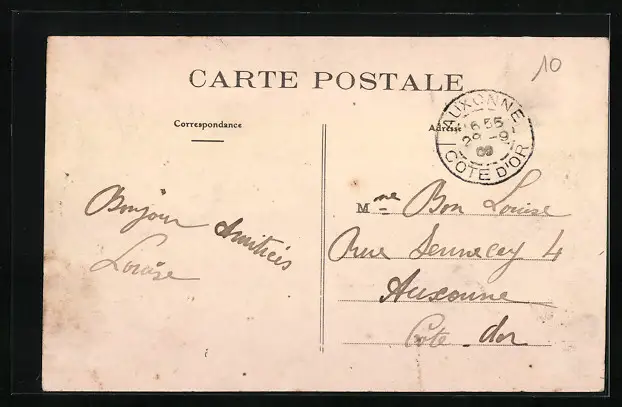 10
CARTE POSTALE
Correspondance
Adresse
AUXONNE
6 55
29 - 9
09
COTE D'OR
Bonjour Amitiés
Louise
Mme Bon Louise
Rue Sennecey 4
Auxonne
Côte-d'or